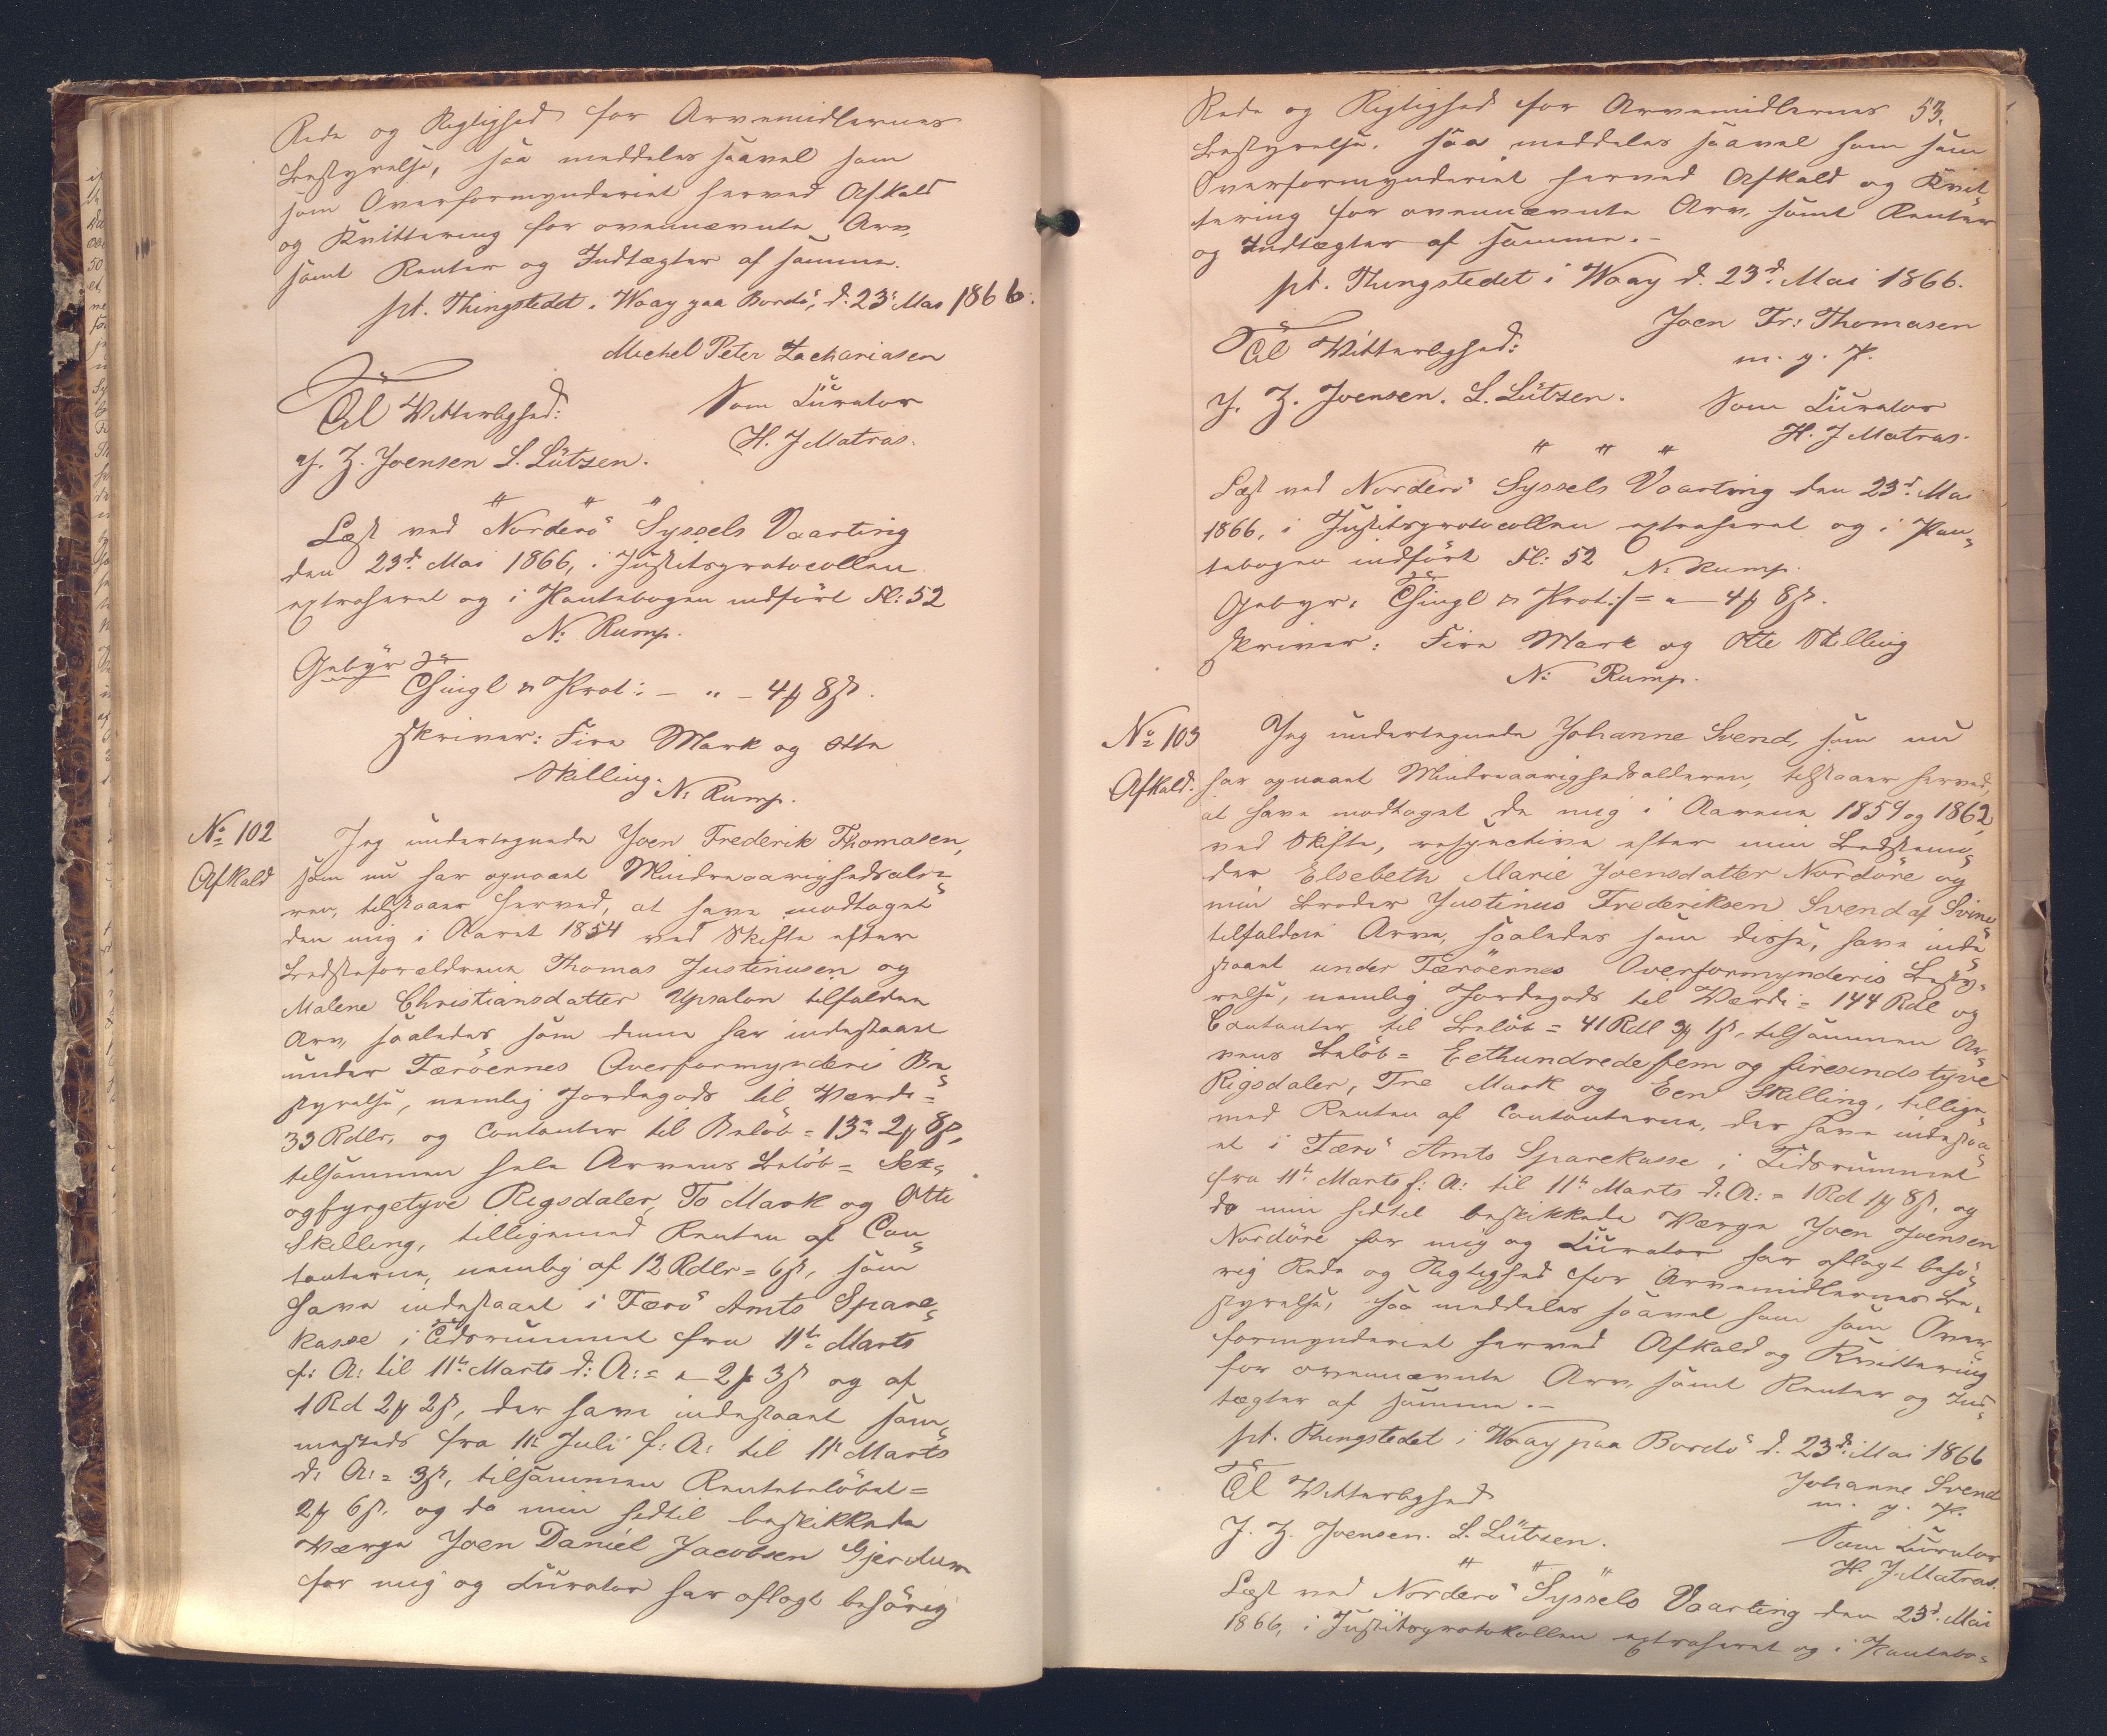 Rede og Rigtighed for Arvemidlernes
Bestyrelse, saa meddeles saavel ham
som Overformynderiet herved Afkald
og Kvittering for ovennævnte Arv,
samt Renter og Indtægter af samme.
pt. Thingstedet i Waag paa Bordö, d. 23d Mai 1866.
Michel Peter Zachariasen
Til Vitterlighed:
Som Curator
J. Z. Joensen L. Lützen.
H. J Matras.
" " "
Læst ved Norderö Syssels Vaarting
den 23d Mai 1866, i Justitsprotocollen
extraheret og i Pantebogen indført Fl: 52
N: Rump.
Gebyr
Thingl & Prot: - " - 4 ꝟ 8 ß.
skriver: Fire Mark og Otte
Skilling. N: Rump.
No 102
Afkald
Jeg undertegnede Joen Frederik Thomasen,
som nu har opnaaet Mindreaarighedsalde=
ren, tilstaaer herved, at have modtaget
den mig i Aaret 1854 ved Skifte efter
Bedsteforældrene Thomas Justinusen og
Malene Christiansdatter Ypsalon tilfaldne
Arv, saaledes som denne har indestaaet
under Færöernes Overformynderis Be=
styrelse, nemlig Jordegods til Værdi =
33 Rdlr, og Contanter til Beløb = 13 rd 2 ꝟ 8 ß,
tilsammen hele Arvens Beløb = Sex=
ogfyrgetyve Rigsdaler, To Mark og Otte
Skilling, tilligemed Renten af Con=
tanterne, nemlig af 12 Rdlr = 6 ß, som
have indestaaet i Færö Amts Spare=
kasse i Tidsrummet fra 11te Marts
f: A: til 11te Marts d: A: = " 2 ꝟ 3 ß og af
1 Rd 2 ꝟ 2 ß, der have indestaaet sam=
mesteds fra 11te Juli f: A: til 11te Marts
d: A: = 3 ß, tilsammen Rentebeløbet =
2 ꝟ 6 ß. og da min hidtil beskikkede
Værge Joen Daniel Jacobsen Gjerdum
for mig og Curator har aflagt behörig
53.
Rede og Rigtighed for Arvemidlernes
Bestyrelse, saa meddeles saavel ham som
Overformynderiet herved Afkald og Kvit=
tering for ovennævnte Arv, samt Renter
og Indtægter af samme.-
pt. Thingstedet i Waag d. 23d Mai 1866.
Joen Fr: Thomasen
Til Vitterlighed:
m. f. P.
J. Z. Joensen. L. Lützen.
Som Curator
H. J Matras.
" " "
Læst ved Norderö Syssels Vaarting den 23d Mai
1866, i Justitsprotocollen extraheret og i Pan=
tebogen indført Fl: 52 N: Rump.
Gebyr: Thingl & Prot: = " - 4 ꝟ 8 ß.
skriver: Fire Mark og Otte Skilling
N: Rump.
No 103
Afkald.
Jeg undertegnede Johanne Svend, som nu
har opnaaet Mindreaarighedsalderen, tilstaaer herved,
at have modtaget de mig i Aarene 1859 og 1862,
ved Skifte, respective efter min Bedstemo=
der Elsebeth Marie Joensdatter Nordöre og
min Broder Justinus Frederiksen Svend af Svinö
tilfaldne Arve, saaledes som disse, have inde=
staaet under Færöernes Overformynderis Besty=
relse, nemlig Jordegods til Værdi = 144 Rdl og
Contanter til Beløb = 41 Rdl 3 ꝟ 1 ß, tilsammen Ar=
vens Beløb = Eethundrede fem og firesindstyve
Rigsdaler, Tre Mark og Een Skilling, tillige=
med Renten af Contanterne, der have indestaa=
et i Færö Amts Sparekasse i Tidsrummet
fra 11te Marts f: A: til 11te Marts d: A: = 1 Rd 1 ꝟ 8 ß, og
da min hidtil beskikkede Værge Joen Joensen
Nordöre for mig og Curator har aflagt behö=
rig Rede og Rigtighed for Arvemidlernes Be=
styrelse, saa meddeles saavel ham som Over=
formynderiet herved Afkald og Kvittering
for ovennævnte Arv, samt Renter og Ind=
tægter af samme.-
pt. Thingstedet i Waag paa Bordö d. 23d Mai 1866
Johanne Svend
Til Vitterlighed
m. f. P.
J. Z. Joensen. L. Lützen.
Som Curator
H. J. Matras.
" " "
Læst ved Norderö Syssels Vaarting den 23d. Mai
1866, i Justitsprotokollen extraheret og i Pantebo=